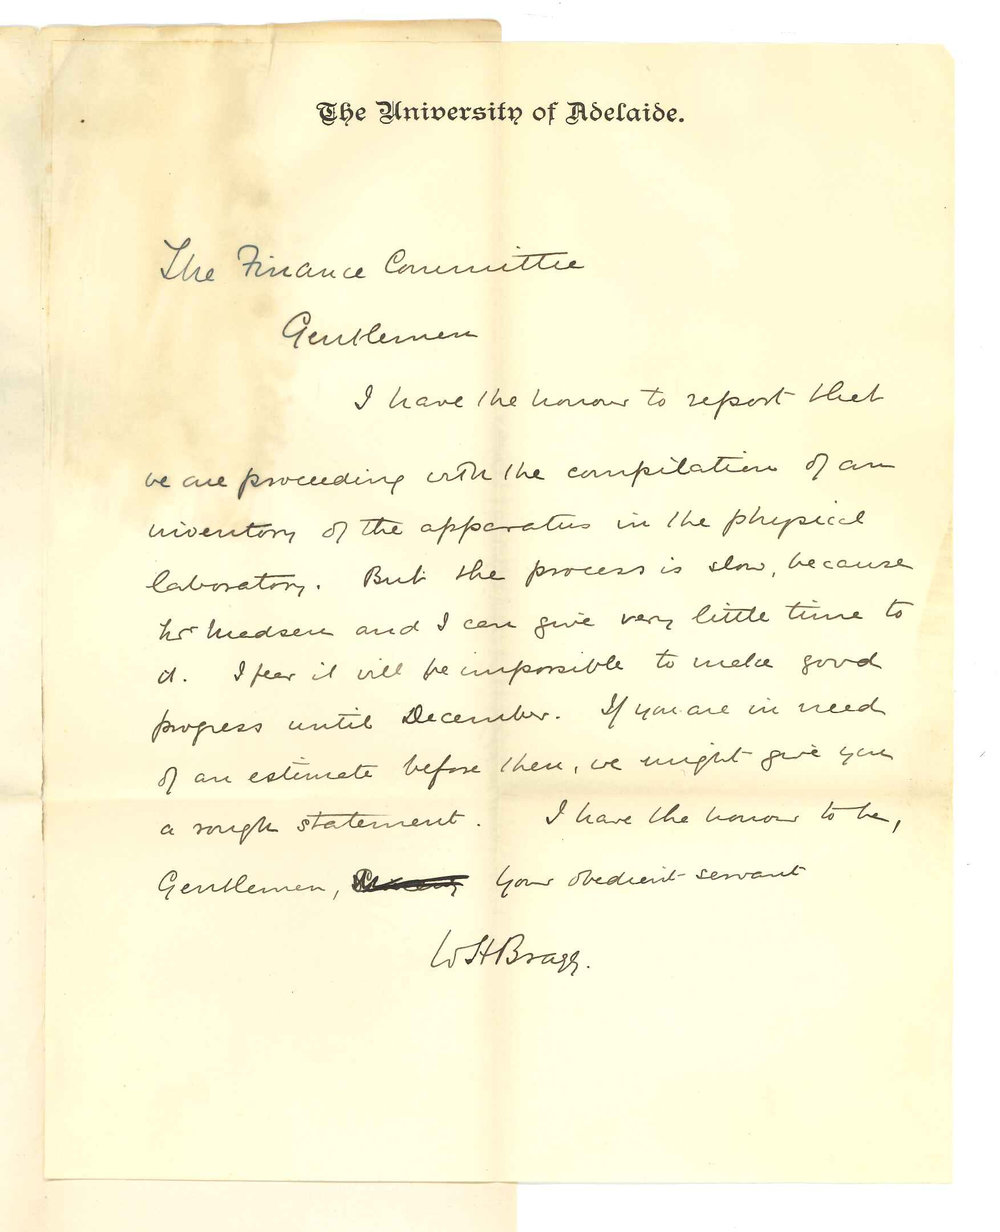 The University of Adelaide.
The Finance Committee
Gentlemen
I have the honour to report that
we are proceeding with the compilation of an
inventory of the apparatus in the physical
laboratory. But the process is slow, because
Mr Madsen and I can give very little time to
it. I fear it will be impossible to make good
progress until December. If you are in need
of an estimate before then, we might give you
a rough statement. I have the honour to be,
Gentlemen, your obedient servant
WHBragg.